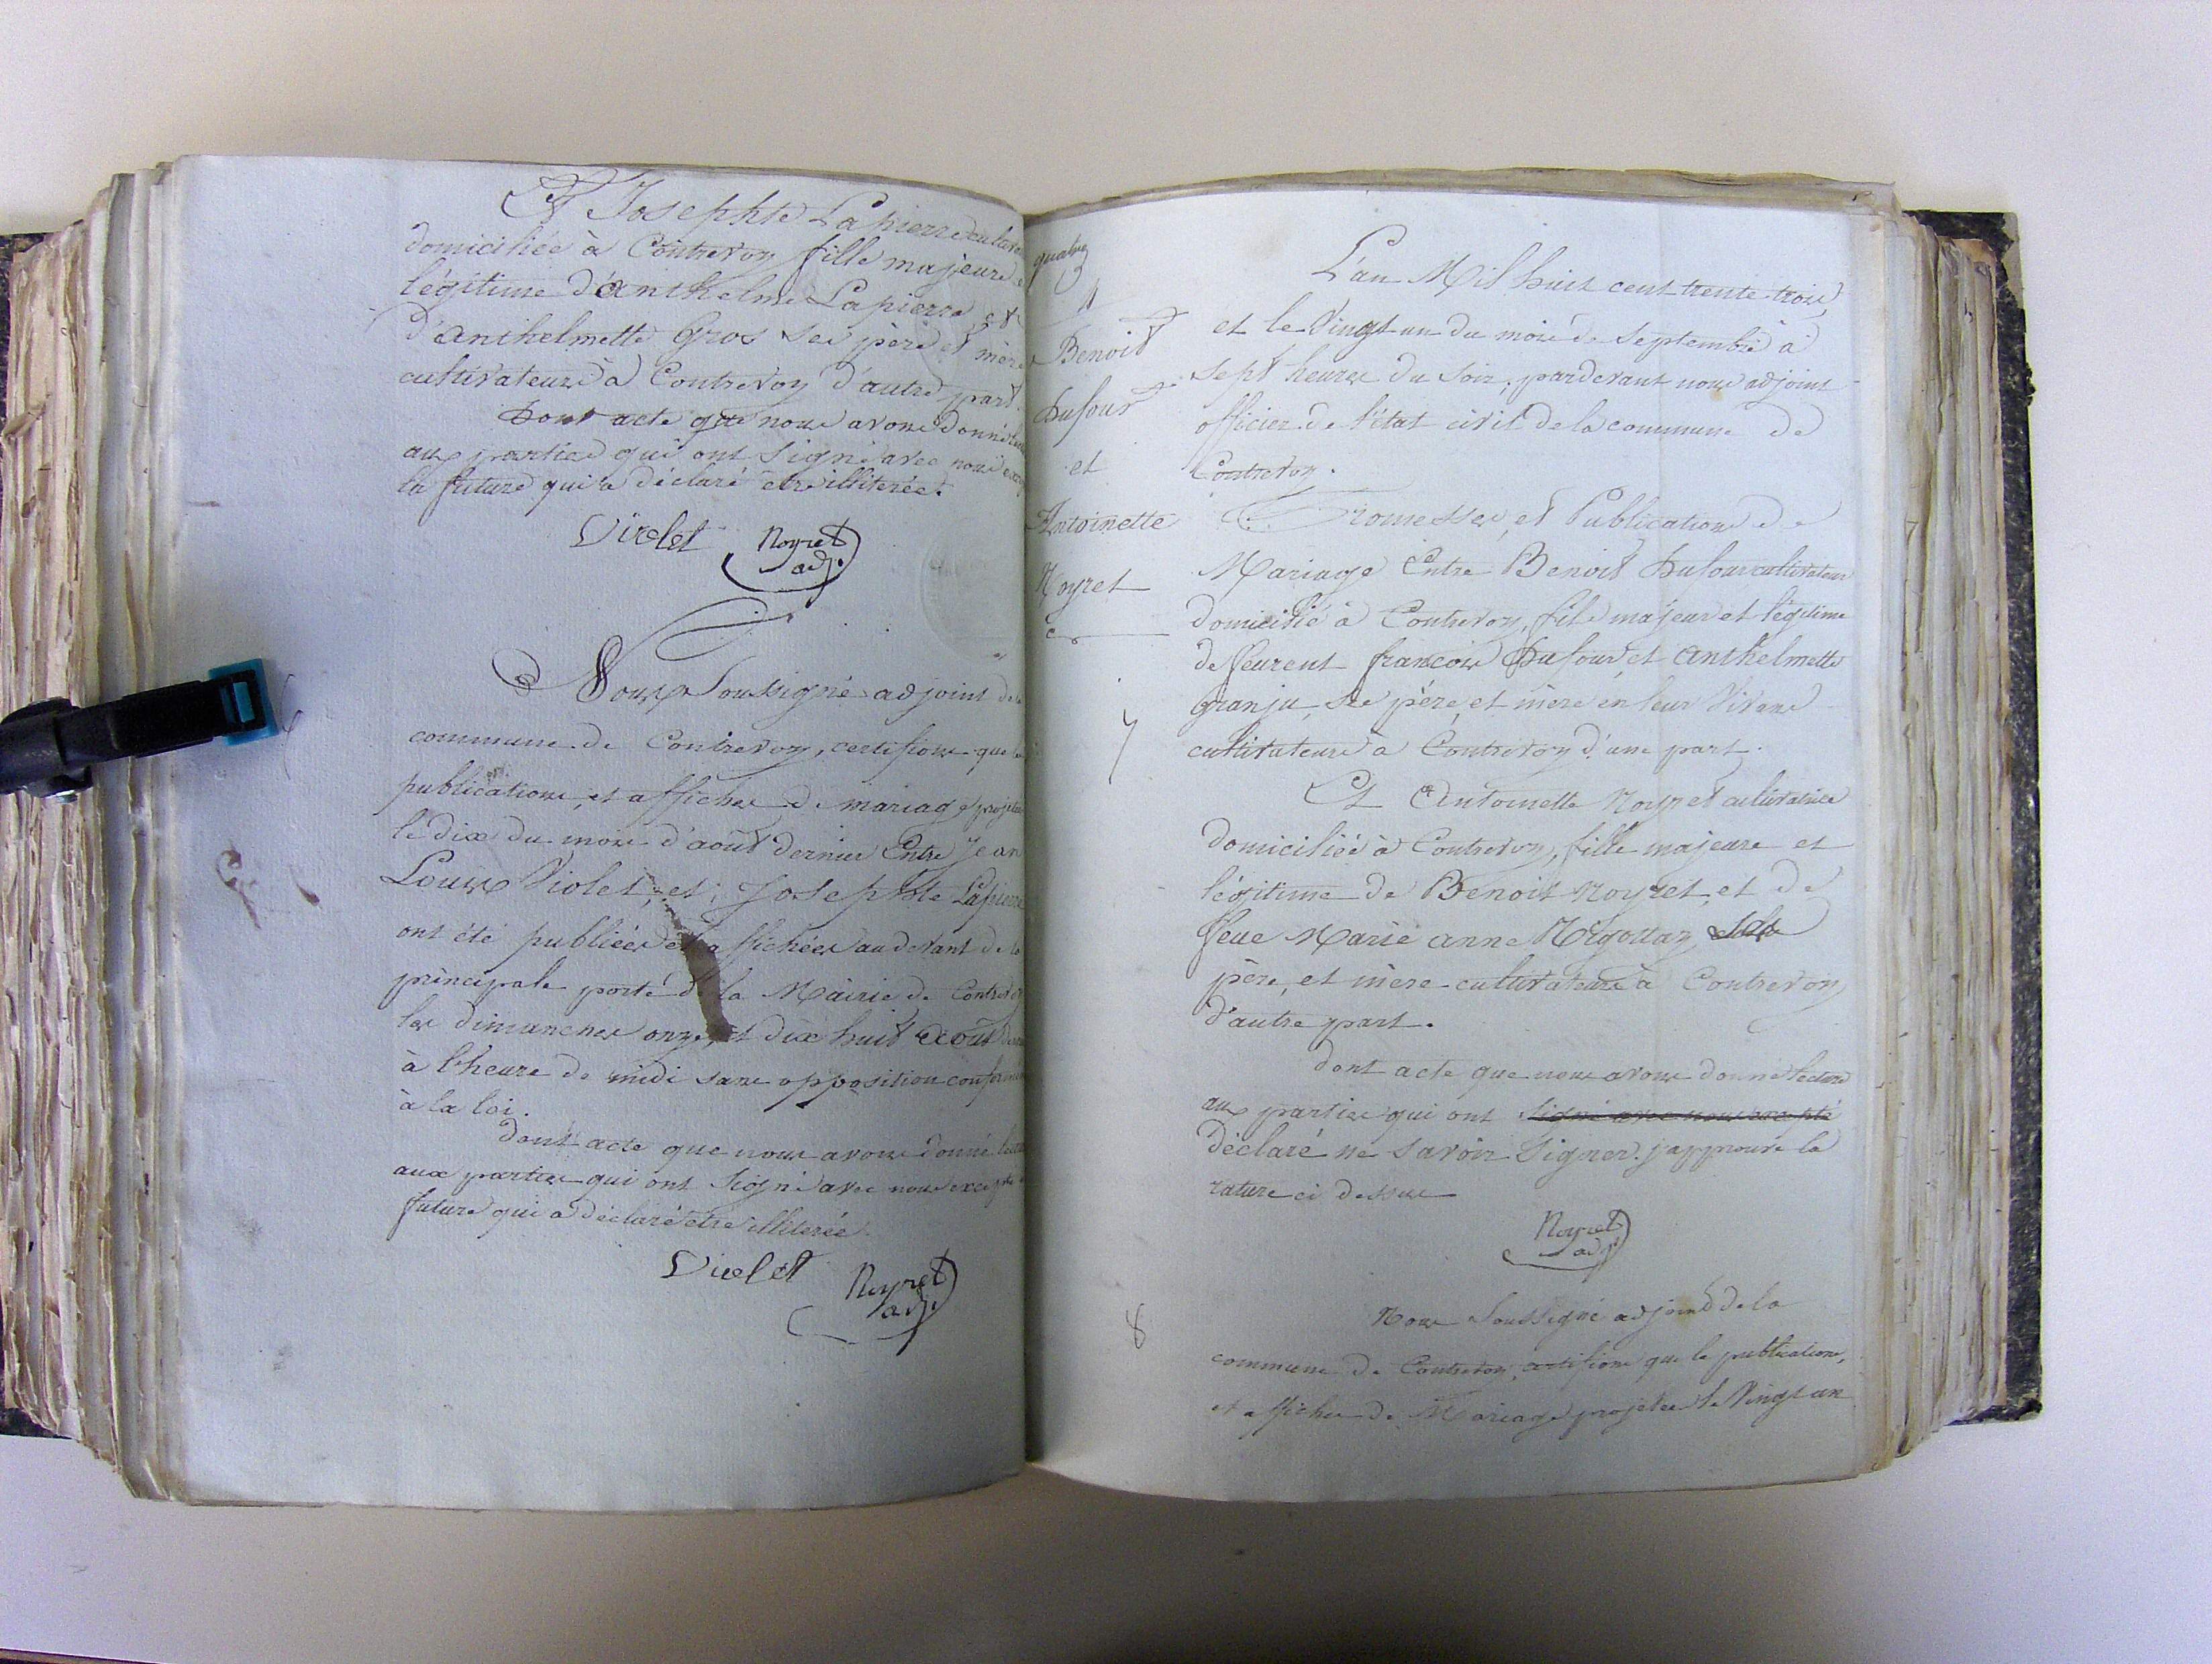 Et Josephte Lapierre
domiciliée à Contrevoz fille majeure
légitime d'Anthelme Lapierre et
d'anthelmette Gros ses père et mère
cultivateurs à Contrevoz d'autre part.
Dont acte que nous avons donné
aux parties qui ont signé avec nous
la future qui a déclaré être illiterée.
Violet Noyret
adj.
Nous Soussigné adjoint de la
commune de Contrevoz, certifions que
publications, et affiches de mariage
le dix du mois d'août dernier Entre Jean
Louis Violet, et, Josephte Lapierre
ont été publiées et affichées au devant de la
principale porte de la Mairie de Contrevoz
les dimanches onze, et dix huit août
à l'heure de midi sans opposition
à la loi.
Dont acte que nous avons donné
aux parties qui ont signé avec nous excepté
future qui a déclaré être illiterée.
Violet Noyret
adj.
quatre
Benoit
Dufour
et
Antoinette
Noyret
7
8
L'an Mil huit cent trente trois,
et le Vingt un du mois de Septembre à
sept heures du soir, pardevant nous adjoint
officier de l'état civil de la commune de
Contrevoz.
Promesses, et Publications de
Mariage Entre Benoit Dufour cultivateur
domicilié à Contrevoz, fils majeur et légitime
de feurent françois Dufour et anthelmette
granju, ses père, et mère en leur Vivans
cultivateurs à Contrevoz d'une part.
Et Antoinette Noyret cultivatrice
domiciliée à Contrevoz, fille majeure et
légitime de Benoit Noyret, et de
feue Marie anne
père, et mère cultivateurs à Contrevoz
d'autre part.
Dont acte que nous avons donné lecture
aux parties qui ont signé avec nous excepté
déclaré ne savoir Signer. j'approuve la
rature ci dessus
Noyret
adj.
Nous Soussigné adjoint de la
commune de Contrevoz, certifions que les publications,
et affiches de Mariage projetées le Vingt un